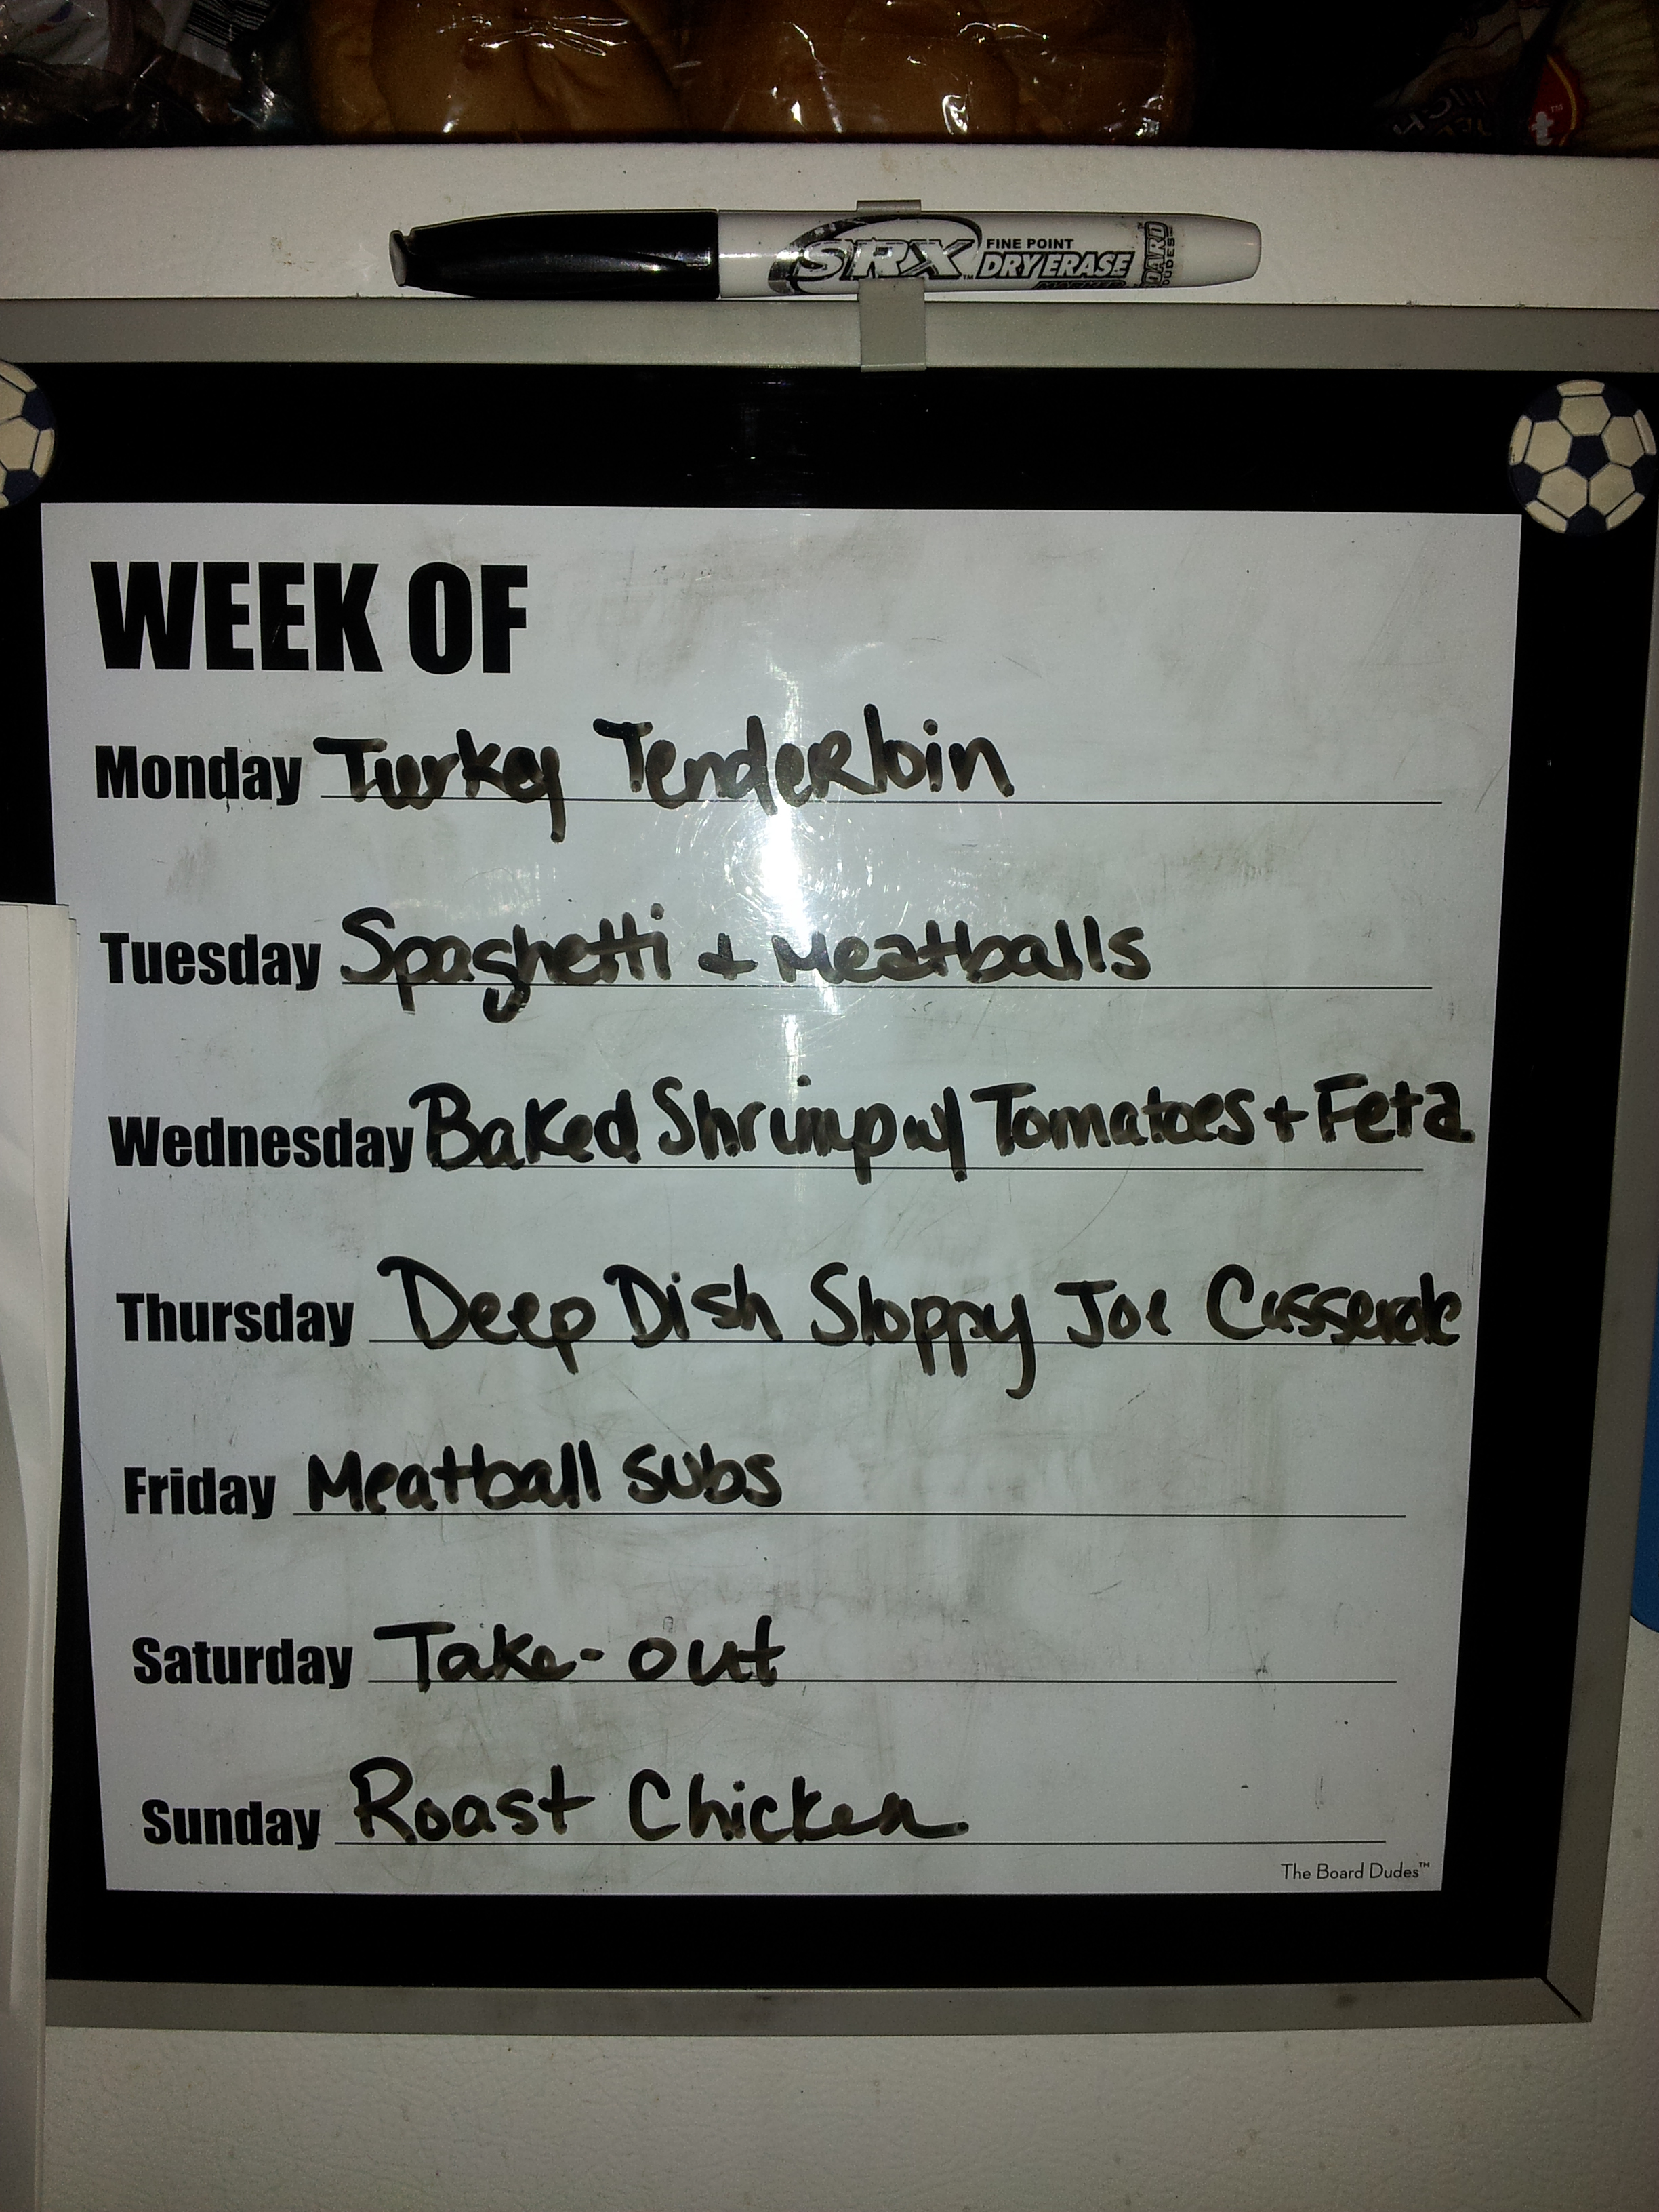 SRX™ FINE POINT
DRY ERASE
MARKER
BOARD
DUDES
WEEK OF
Monday Turkey Tenderloin
Tuesday Spaghetti + Meatballs
Wednesday Baked Shrimp w/ Tomatoes + Feta
Thursday Deep Dish Sloppy Joe Casserole
Friday Meatball Subs
Saturday Take-out
Sunday Roast Chicken
The Board Dudes™